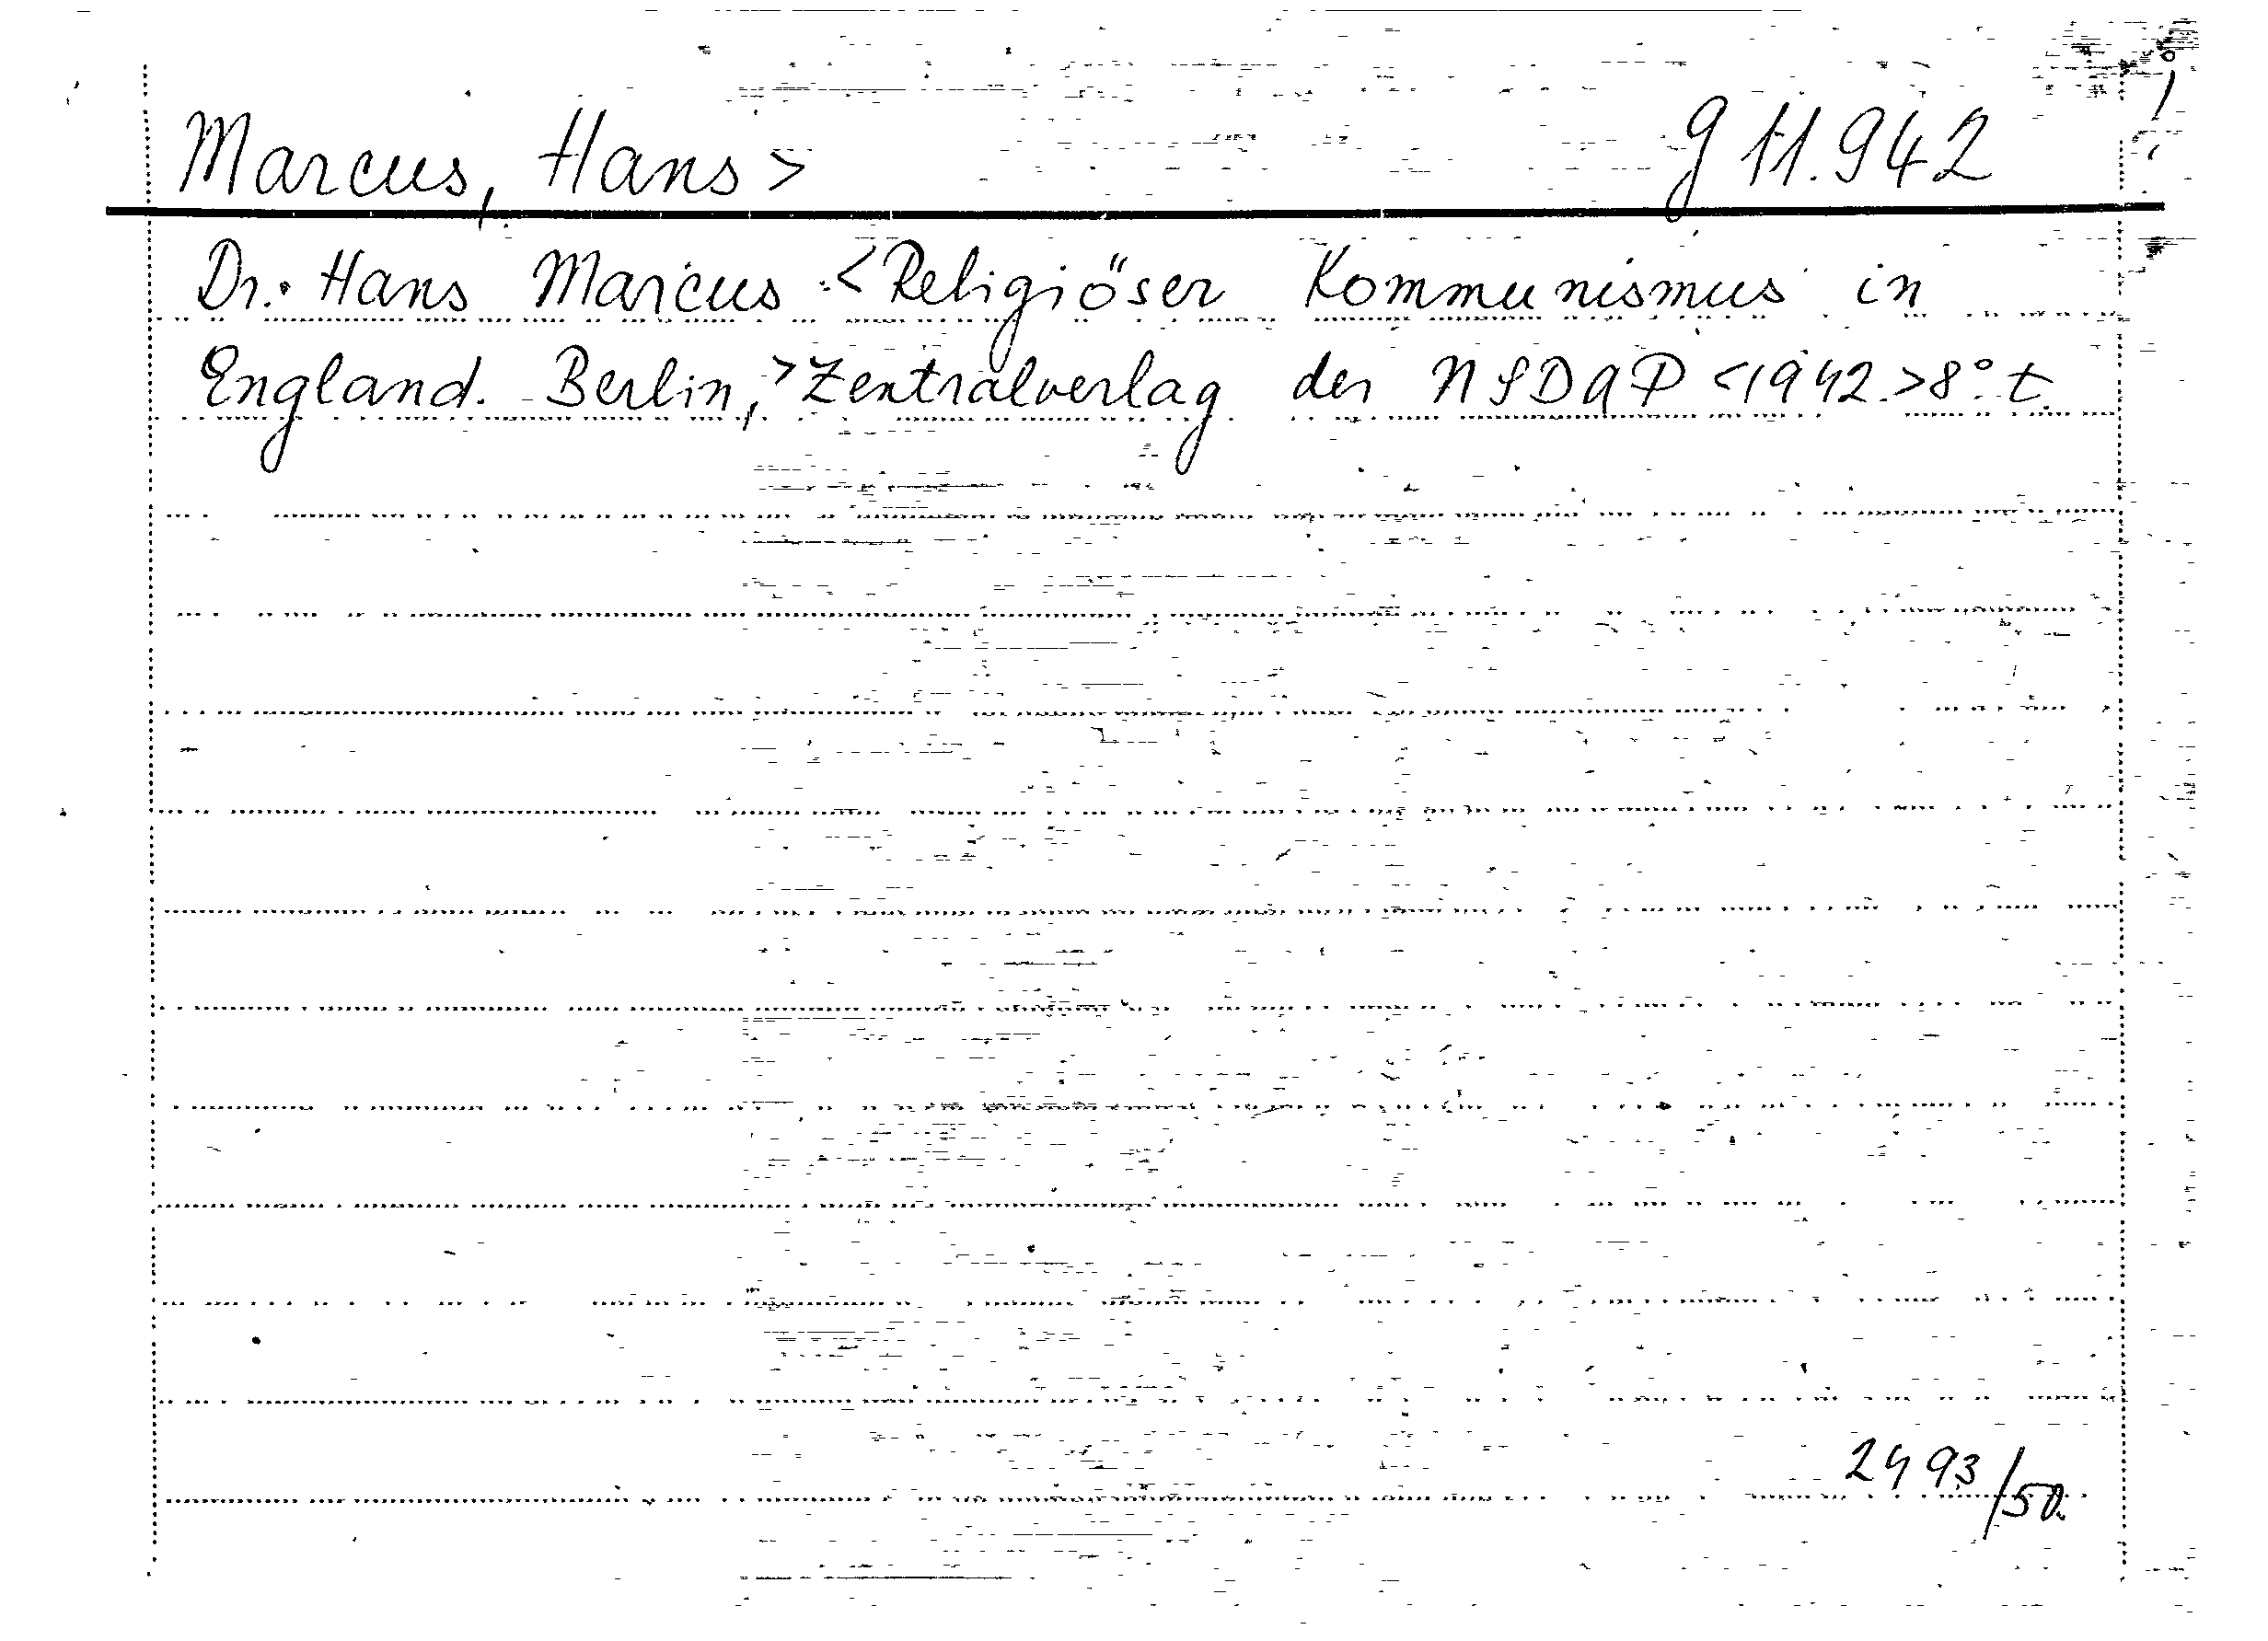 Marcus, Hans> g 11.942
Dr. Hans Marcus <Religiöser Kommunismus in
England. Berlin,> Zentralverlag der NSDAP <1942.> 8° t.
2493/50.